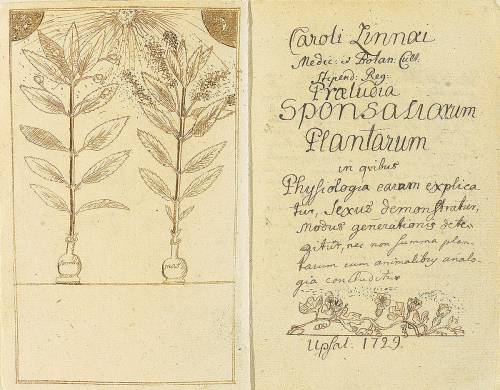 mas
Caroli Linnæi
Medic: & Botan: Cult.
Stipend: Reg:
Præludia
Sponsaliorum
Plantarum
in qvibus
Physiologia earum explica
tur, Sexus demonstratur,
Modus generationis dete-
gitur, nec non summa plan-
tarum cum animalibus analo-
gia concluditur
Upsal. 1729.